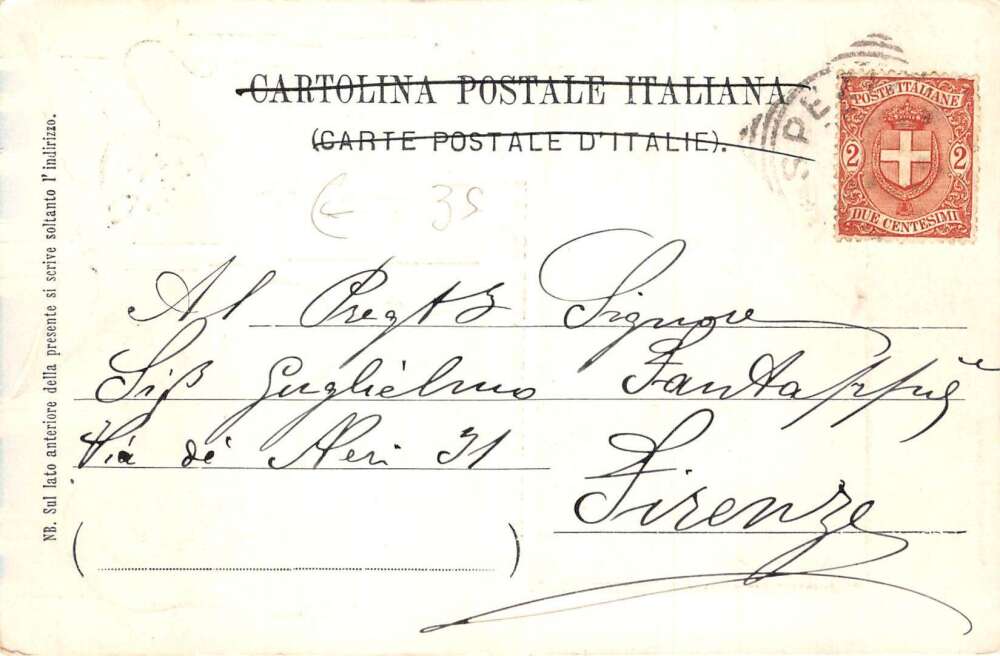 CARTOLINA POSTALE ITALIANA
(CARTE POSTALE D'ITALIE).
SPE
POSTE ITALIANE
2 2
DUE CENTESIMI
NB. Sul lato anteriore della presente si scrive soltanto l'indirizzo.
35
Al Preg Signore
Guglielmo Fantappiè
Via dé Neri 31
Firenze